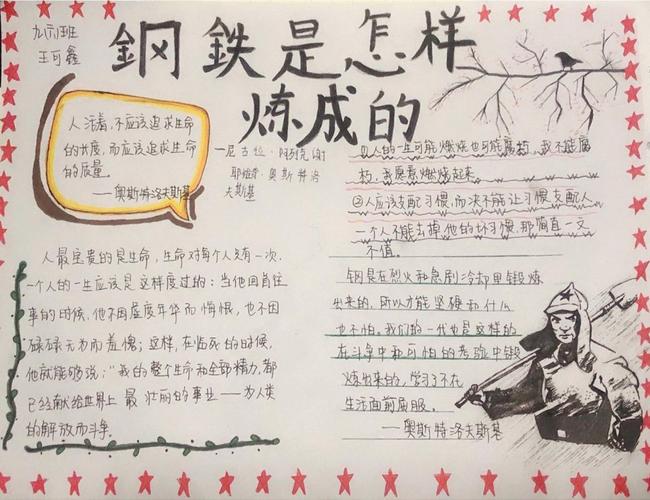 九六班
王可鑫
鋼鉄是怎样
炼成的
人活着,不应该追求生命
的长度,而应该追求生命
的质量。
——奥斯特洛夫斯基
—尼古拉·阿列克谢
耶维奇·奥斯特洛
夫斯基
①人的一生可能燃烧也可能腐朽,我不能腐
朽,我愿意燃烧起来。
②人应该支配习惯,而决不能让习惯支配人,
一个人不能去掉他的坏习惯,那简直一文
不值。
人最宝贵的是生命,生命对每个人只有一次.
一个人的一生应该是这样度过的:当他回首往
事的时候,他不因虚度年华而悔恨,也不因
碌碌无为而羞愧;这样,在临死的时候,
他就能够说:“我的整个生命和全部精力,都
已经献给世界上最壮丽的事业——为人类
的解放而斗争.
钢是在烈火和急剧冷却里锻炼
出来的,所以才能坚硬和什么
也不怕。我们的一代也是这样的
在斗争中和可怕的考验中锻
炼出来的,学习了不在
生活面前屈服。
——奥斯特洛夫斯基